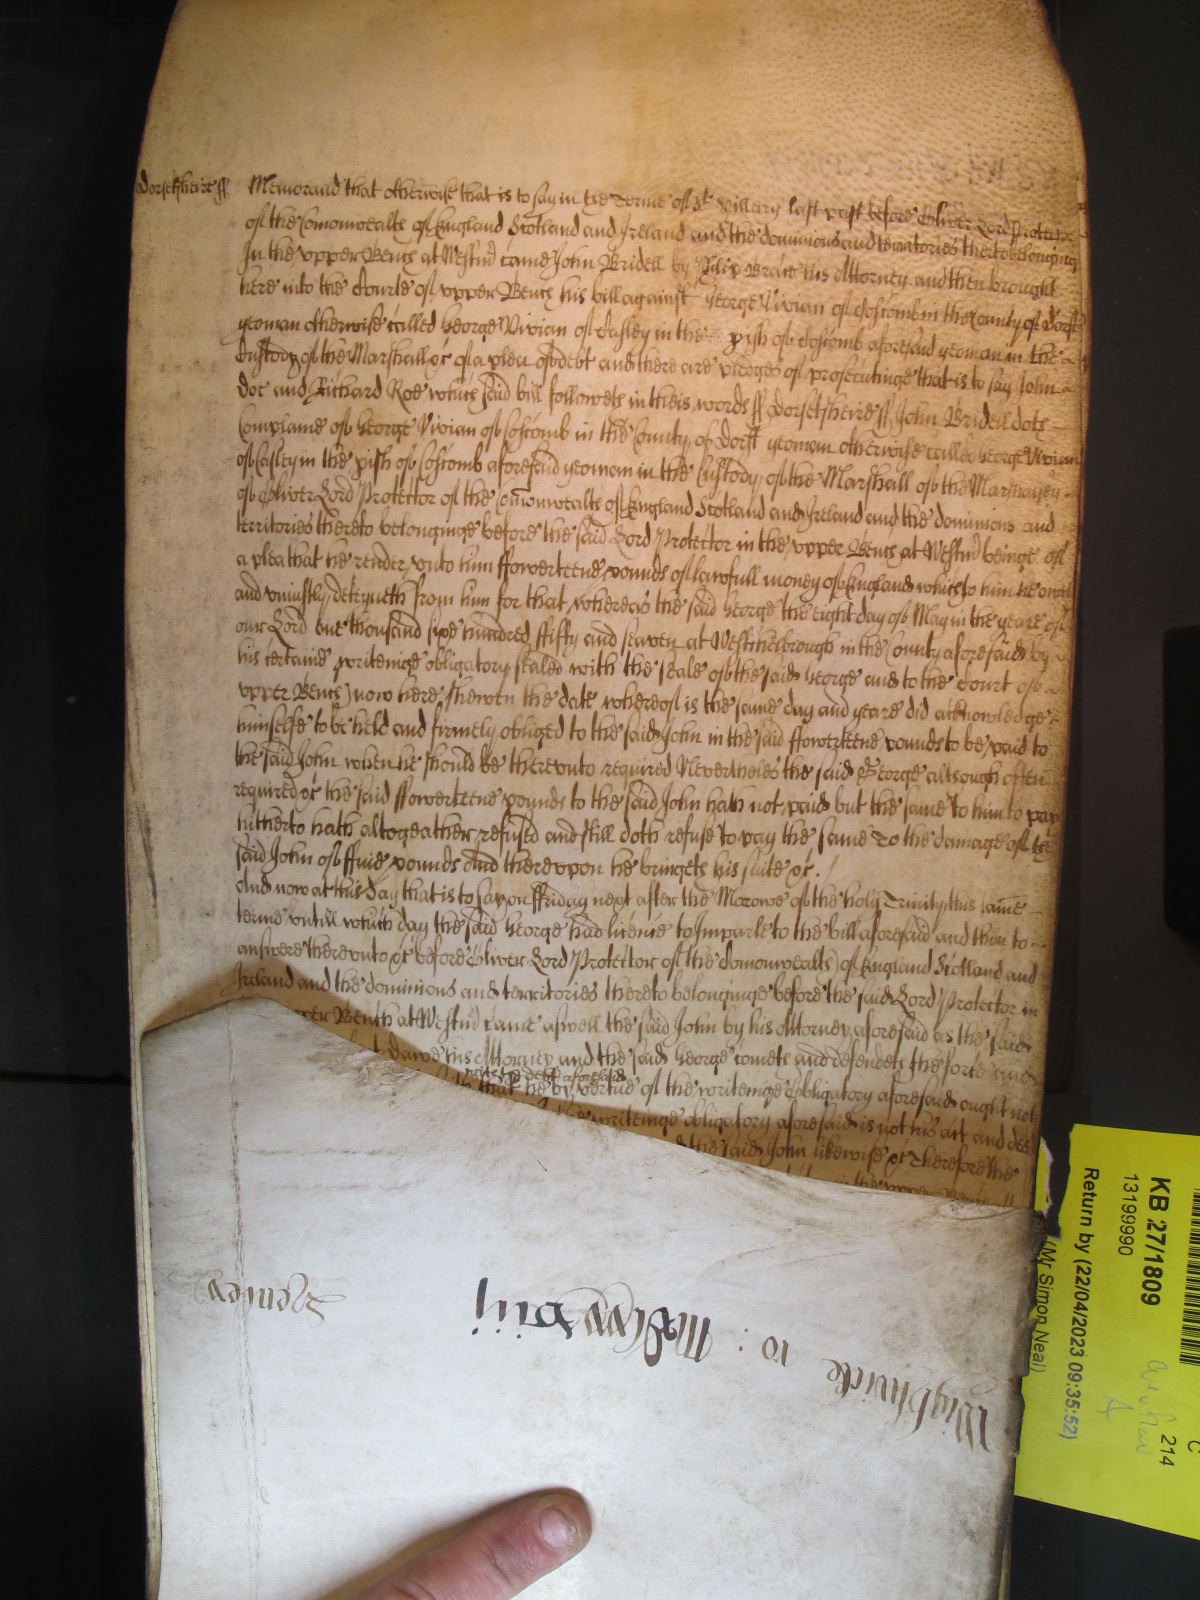 Dorsetsheire ss Memorand that otherwise that is to say in the Terme of St Hillary last past before Oliver Lord Protector
of the Comonwealth of England Scotland and Ireland and the dominions and territories thereto belonginge
In the upper Bench at Westm̃ came John Bridell by Brace his Attorney and then brought
here into the Courte of upper Bench his bill against George Vivian of Coscomb in the County of Dorst
yeoman otherwise called George Vivian of Easley in the pish of Coscomb aforesaid yeoman in the
Custody of the Marshall &c of a plea of debt and there are pledges of prosecutinge that is to say John
Doe and Richard Roe which said bill followeth in theis words ss Dorsetsheire ss John Bridell doth
Complaine of George Vivian of Coscomb in the County of Dorst yeoman otherwise called George Vivian
of Easley in the pish of Coscomb aforesaid yeoman in the Custody of the Marshall of the Marshalsey
of Oliver Lord Protector of the Comonwealth of England Scotland and Ireland and the dominions and
territories thereto belonginge before the said Lord Protector in the upper Bench at Westm̃ beinge of
a plea that he render unto him ffowerteene pounds of lawfull money of England which to him he oweth
and uniustly deteyneth from him for that whereas the said George the eight day of May in the yeare of
our Lord one thousand sixe hundred ffifty and seaven at in the County aforesaid by
his certaine writeinge obligatory sealed with the seale of the said George and to the Court of
upper Bench now here shewen the date whereof is the same day and yeare did acknowledge
himselfe to be held and firmely obliged to the said John in the said ffowerteene pounds to be paid to
the said John when he should be thereunto required Neverthelés the said George although often
required &c the said ffowerteene pounds to the said John hath not paid but the same to him to pay
hitherto hath altogeather refused and still doth refuse to pay the same To the damage of the
said John of ffive pounds And thereupon he bringeth his suite &c
And now at this day that is to say on ffriday next after the Morowe of the holy Trinity this same
terme untill which day the said George had licence to Imparle to the bill aforesaid and then to
answere thereunto &c before Oliver Lord Protector of the Comonwealth of England Scotland and
Ireland and the dominions and territories thereto belonginge before the said Lord Protector in
per Bench at Westm̃ came aswell the said John by his Attorney aforesaid as the said
Dawe his Attorney and the said George cometh and defendeth the force and
with the debt aforesaid
that he by vertue of the writeinge Obligatory aforesaid ought not
writeinge obligatory aforesaid is not his act and deed
the said John likewise &c Therefore the
in the upper Bench
Wightwicke ro: iiij
KB 27/1809
13199990
Return by (22/04/2023 09:35:52)
(Mr Simon Neal)
C
214